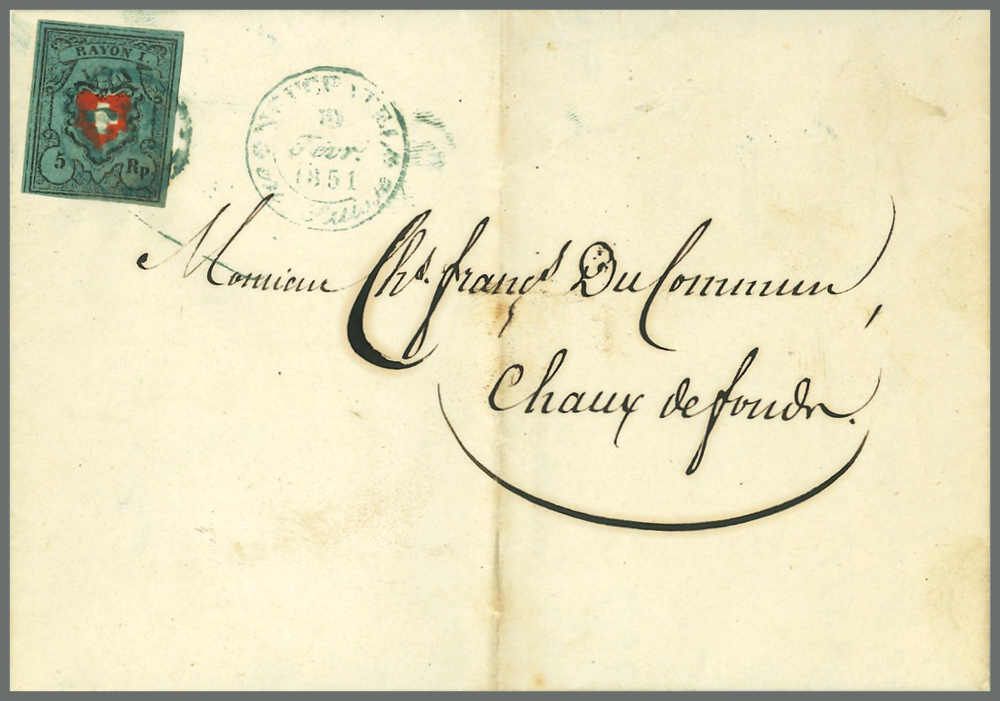 RAYON I.
5 Rp.
NEUCHATEL
Févr.
1851
Suisse
Monsieur Chs. franç.s DuCommun,
Chaux de fonds.